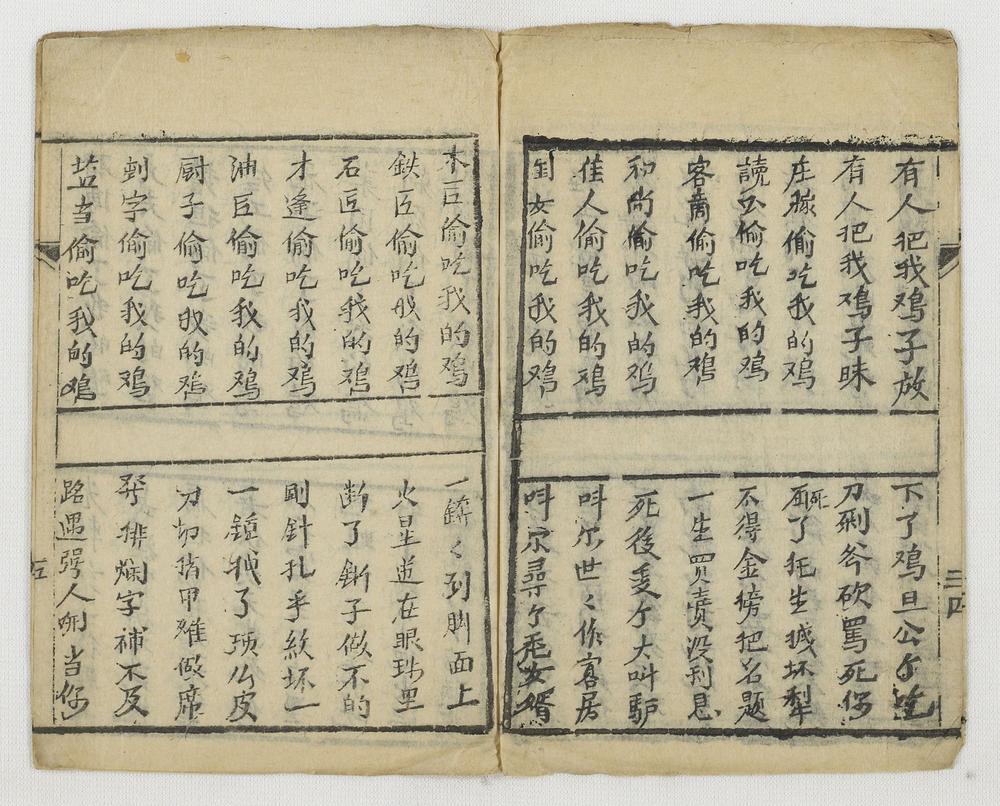 有人把我鸡子放
下了鸡旦公个
有人把我鸡子昧
刀剐斧砍罵死你
庄稼偷吃我的鸡
死了托生 坏犁
讀公偷吃我的鸡
不得金榜把名題
客商偷吃我的鸡
一生買賣没利息
和尚偷吃我的鸡
死後变个大叫驴
佳人偷吃我的鸡
叫尔世々作寡居
闺女偷吃我的鸡
叫尔尋个秃女婿
三四
木巨偷吃我的鸡
一錛々到脚面上
鉄匠偷吃我的鸡
火星逬在眼珠里
石匠偷吃我的鸡
断了 子做不的
才逢偷吃我的鸡
剛針扎手紋坏一
油匠偷吃我的鸡
一 了頂 皮
厨子偷吃我的鸡
刀切指甲难做席
字偷吃我的鸡
排爛字補不及
当偷吃我的鸡
路遇强人 当你